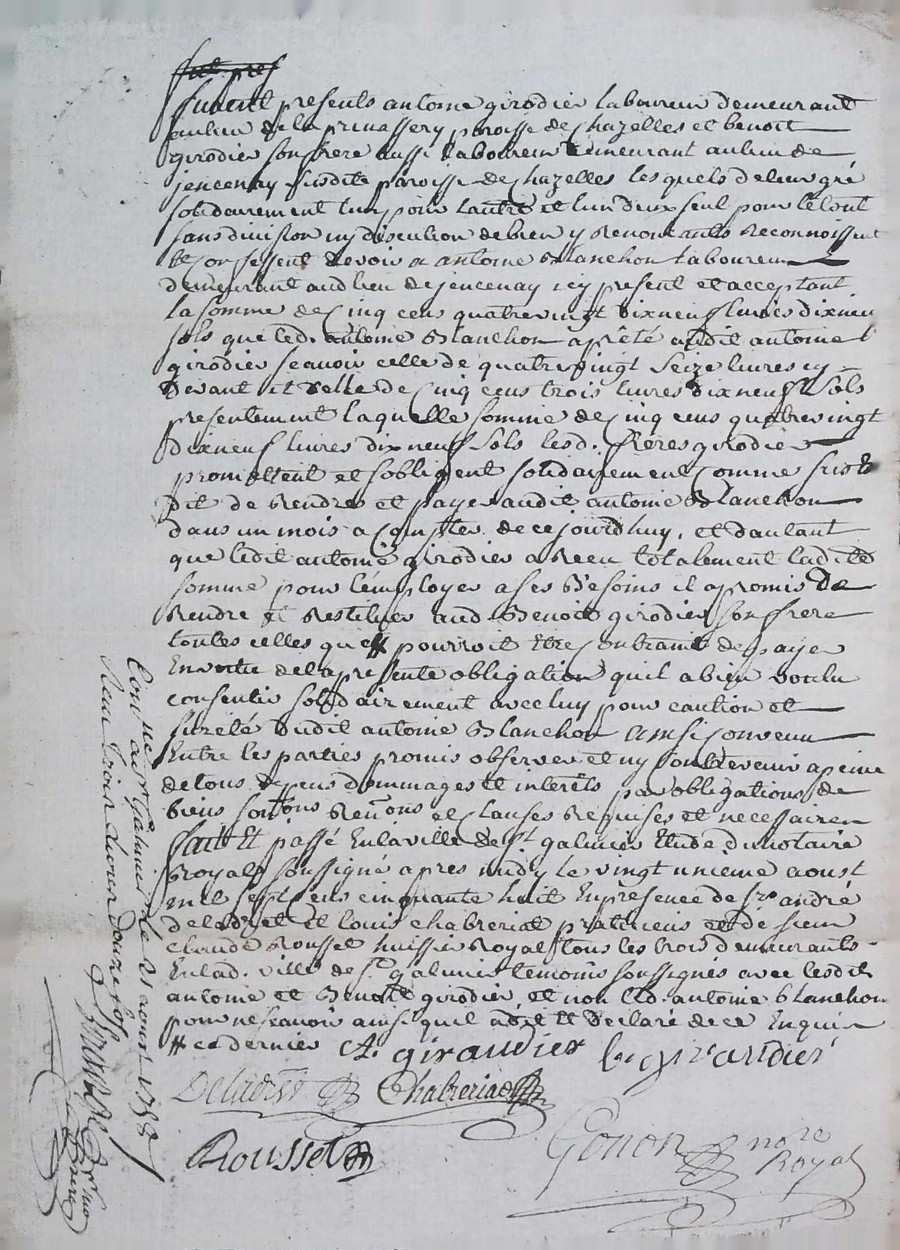 furent pres
furent presents antoine girodier laboureur demeurant
au lieu de la prinassery paroisse de Chazelles et benoit
girodier son frere aussi laboureur demeurant au lieu de
jencenay susdite paroisse de Chazelles lesquels de leur gré
solidairement lun pour lautre et lun deux seul pour le tout
sans division ny discution de bien y renoncants reconnoissent
et Confessent devoir a antoine Blanchon laboureur
demeurant aud lieu de jencenay icy present et acceptant
la somme de Cinq cens quatre vingt dixneuf livres dixneuf
sols que led. antoine Blanchon a prêté audit antoine
girodier scavoir celle de quatre vingt seize livres cy
devant et celle de Cinq cens trois livres dixneuf sols
presentement laquelle somme de Cinq cens quatre vingt
dixneuf livres dixneuf sols lesd. freres girodier
promettent et sobligent solidairement Comme susd
dit de rendre et payer audit antoine Blanchon
dans un mois a Compter de ce jourdhuy, et dautant
que ledit antoine girodier a reçu totalement ladite
somme pour lémployer a ses Besoins il a promis de
Rendre et Restituer aud Benoit girodier son frere
toutes celles que # pourroit être Contraint de payer
En vertu de la presente obligation quil a bien voulu
consentir solidairement avec luy pour caution et
sureté dudit antoine Blanchon ainsi Convenu
Entre les parties promis observer et ny Contrevenir a peine
de tous depens dommages et interêts par obligations de
biens soûons Renons et Clauses Requises et necessaires
fait Et passé En la ville de St galmier Etude du notaire
Royal soussigné apres midy le vingt unieme aoust
mil sept cens cinquante huit En presence de srs andré
et louis chabreriat praticiens et de sieur
claude Rousset huissier Royal tous les trois demeurants
En lad. ville de St galmier temoins soussignés avec lesdit
antoine et Benoit girodier, et non led. antoine blanchon
pour ne scavoir ainsi quil a dit et declaré de ce Enquis
# ce dernier A. giraudier b. giraudier
Chabreriat
Rousset Gonon nore
Royal
Con.lé a St Galmier le 21 aoust 1758
Reçu trois livres douze sols